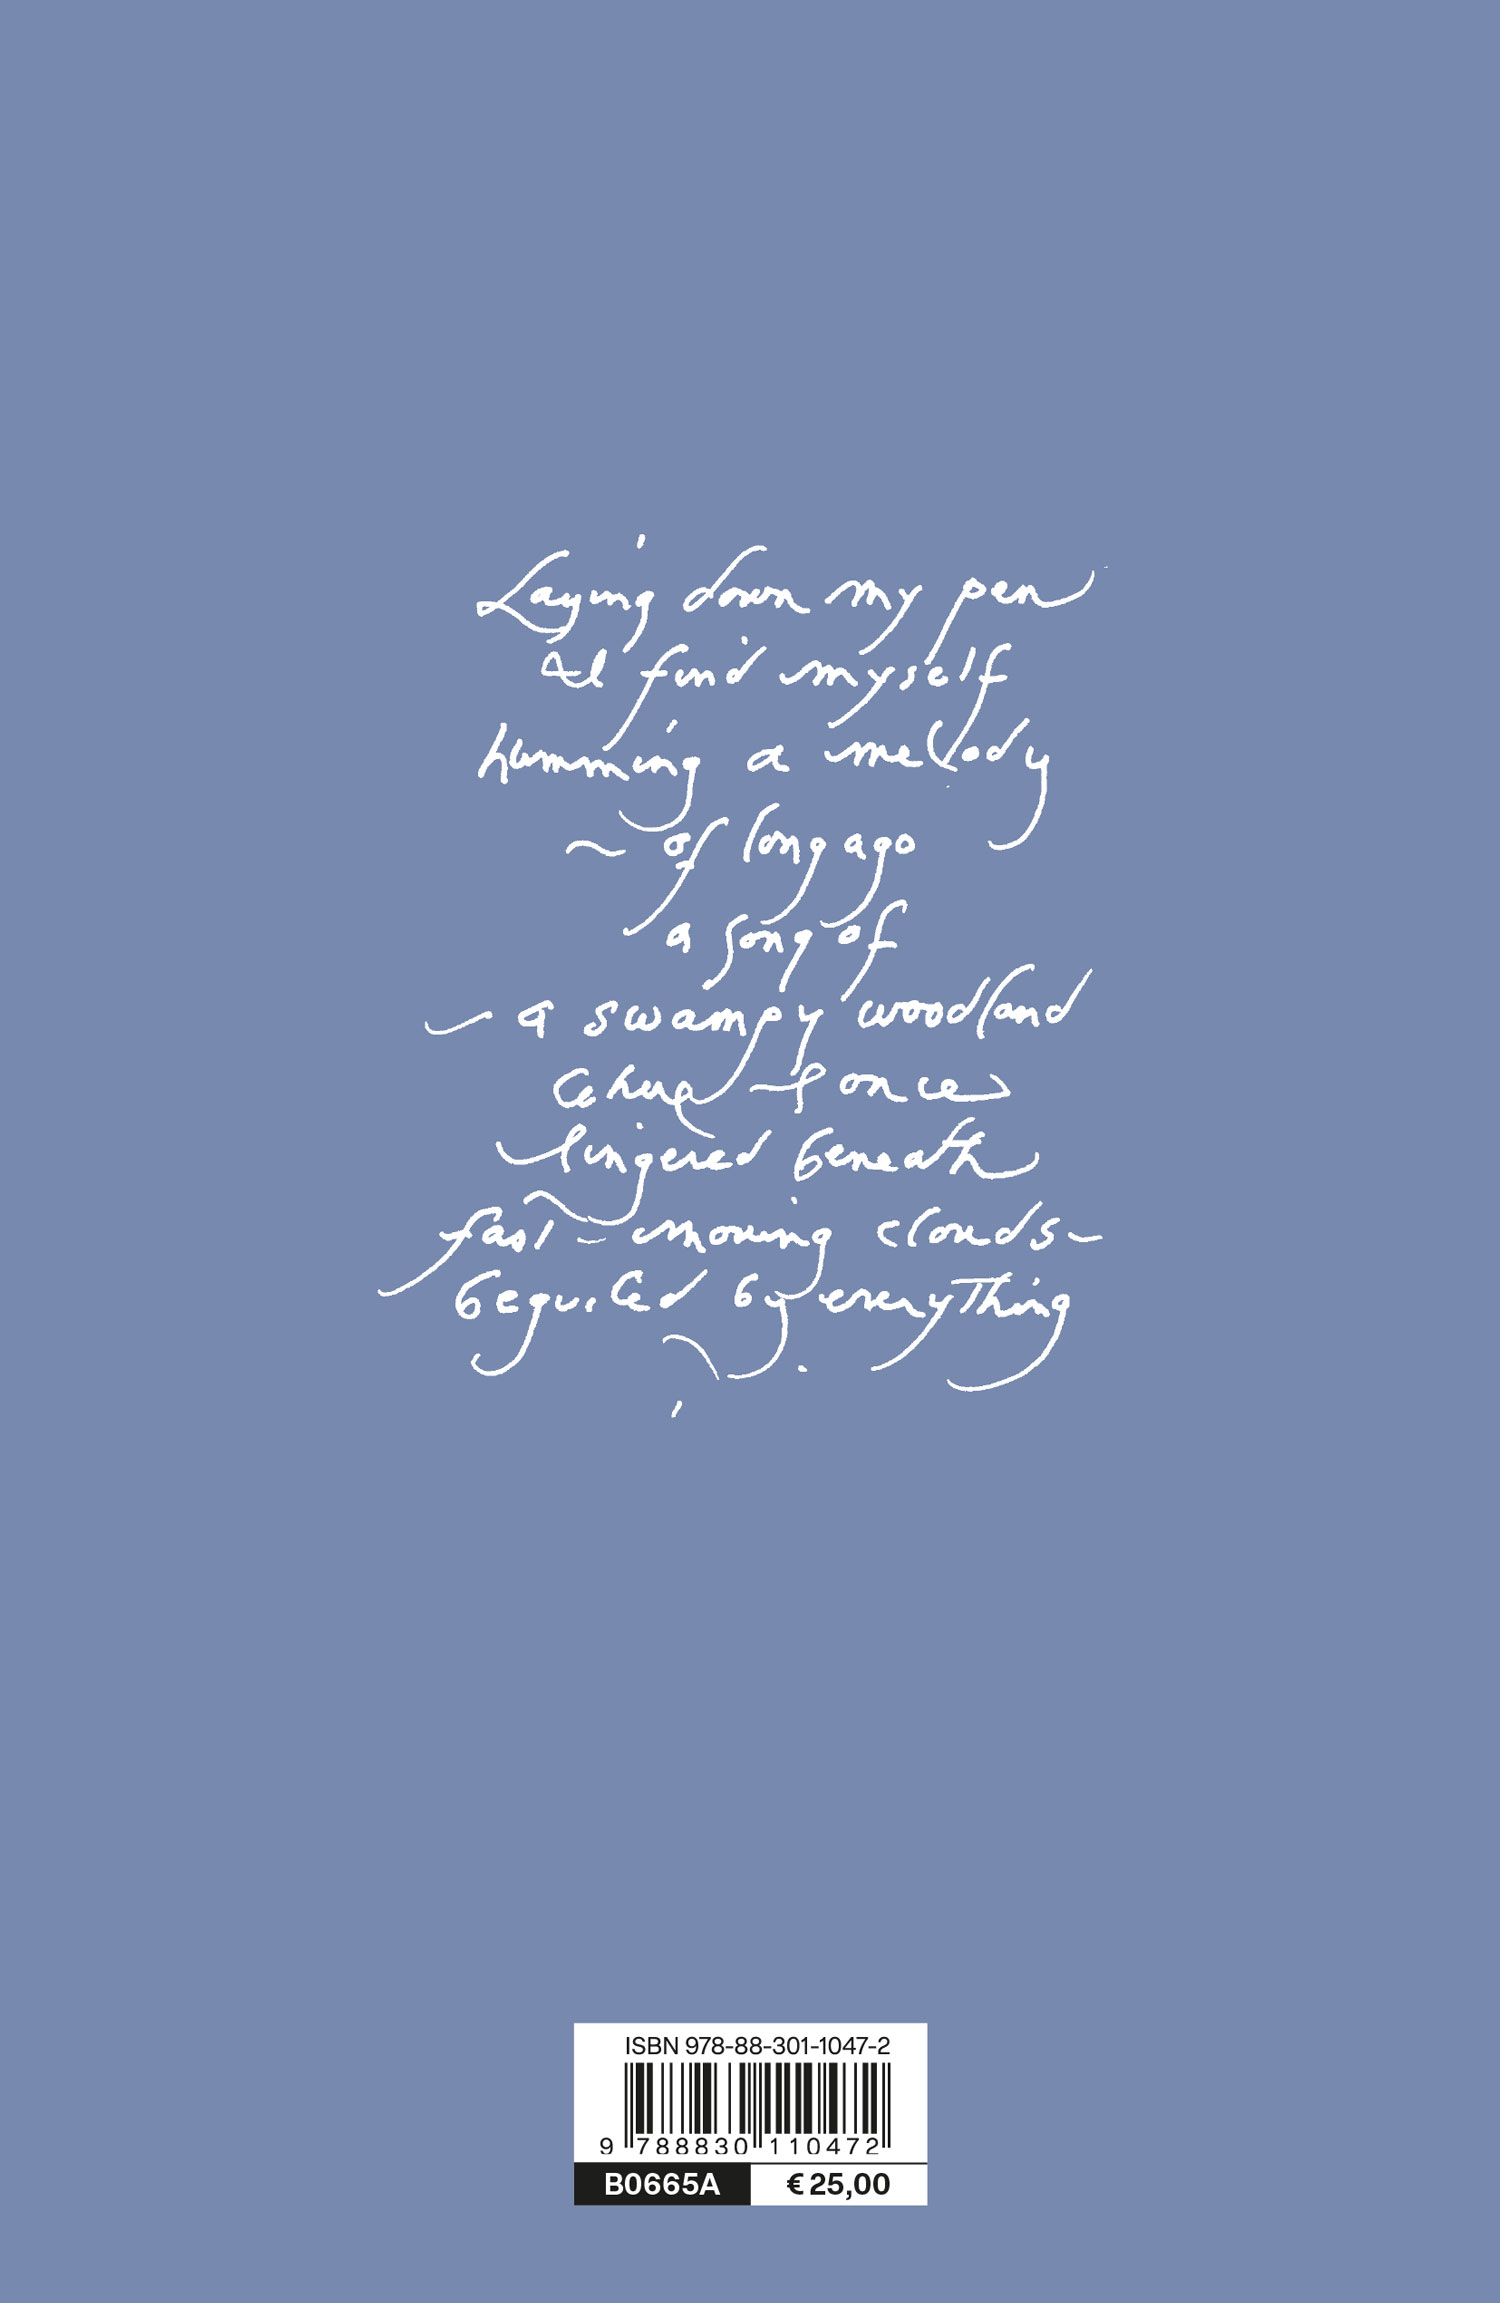 Laying down my pen
I find myself
humming a melody
~ of long ago
a song of
– a swampy woodland
where I once
lingered beneath
fast-moving clouds–
beguiled by everything
ISBN 978-88-301-1047-2
9 788830 110472
B0665A € 25,00